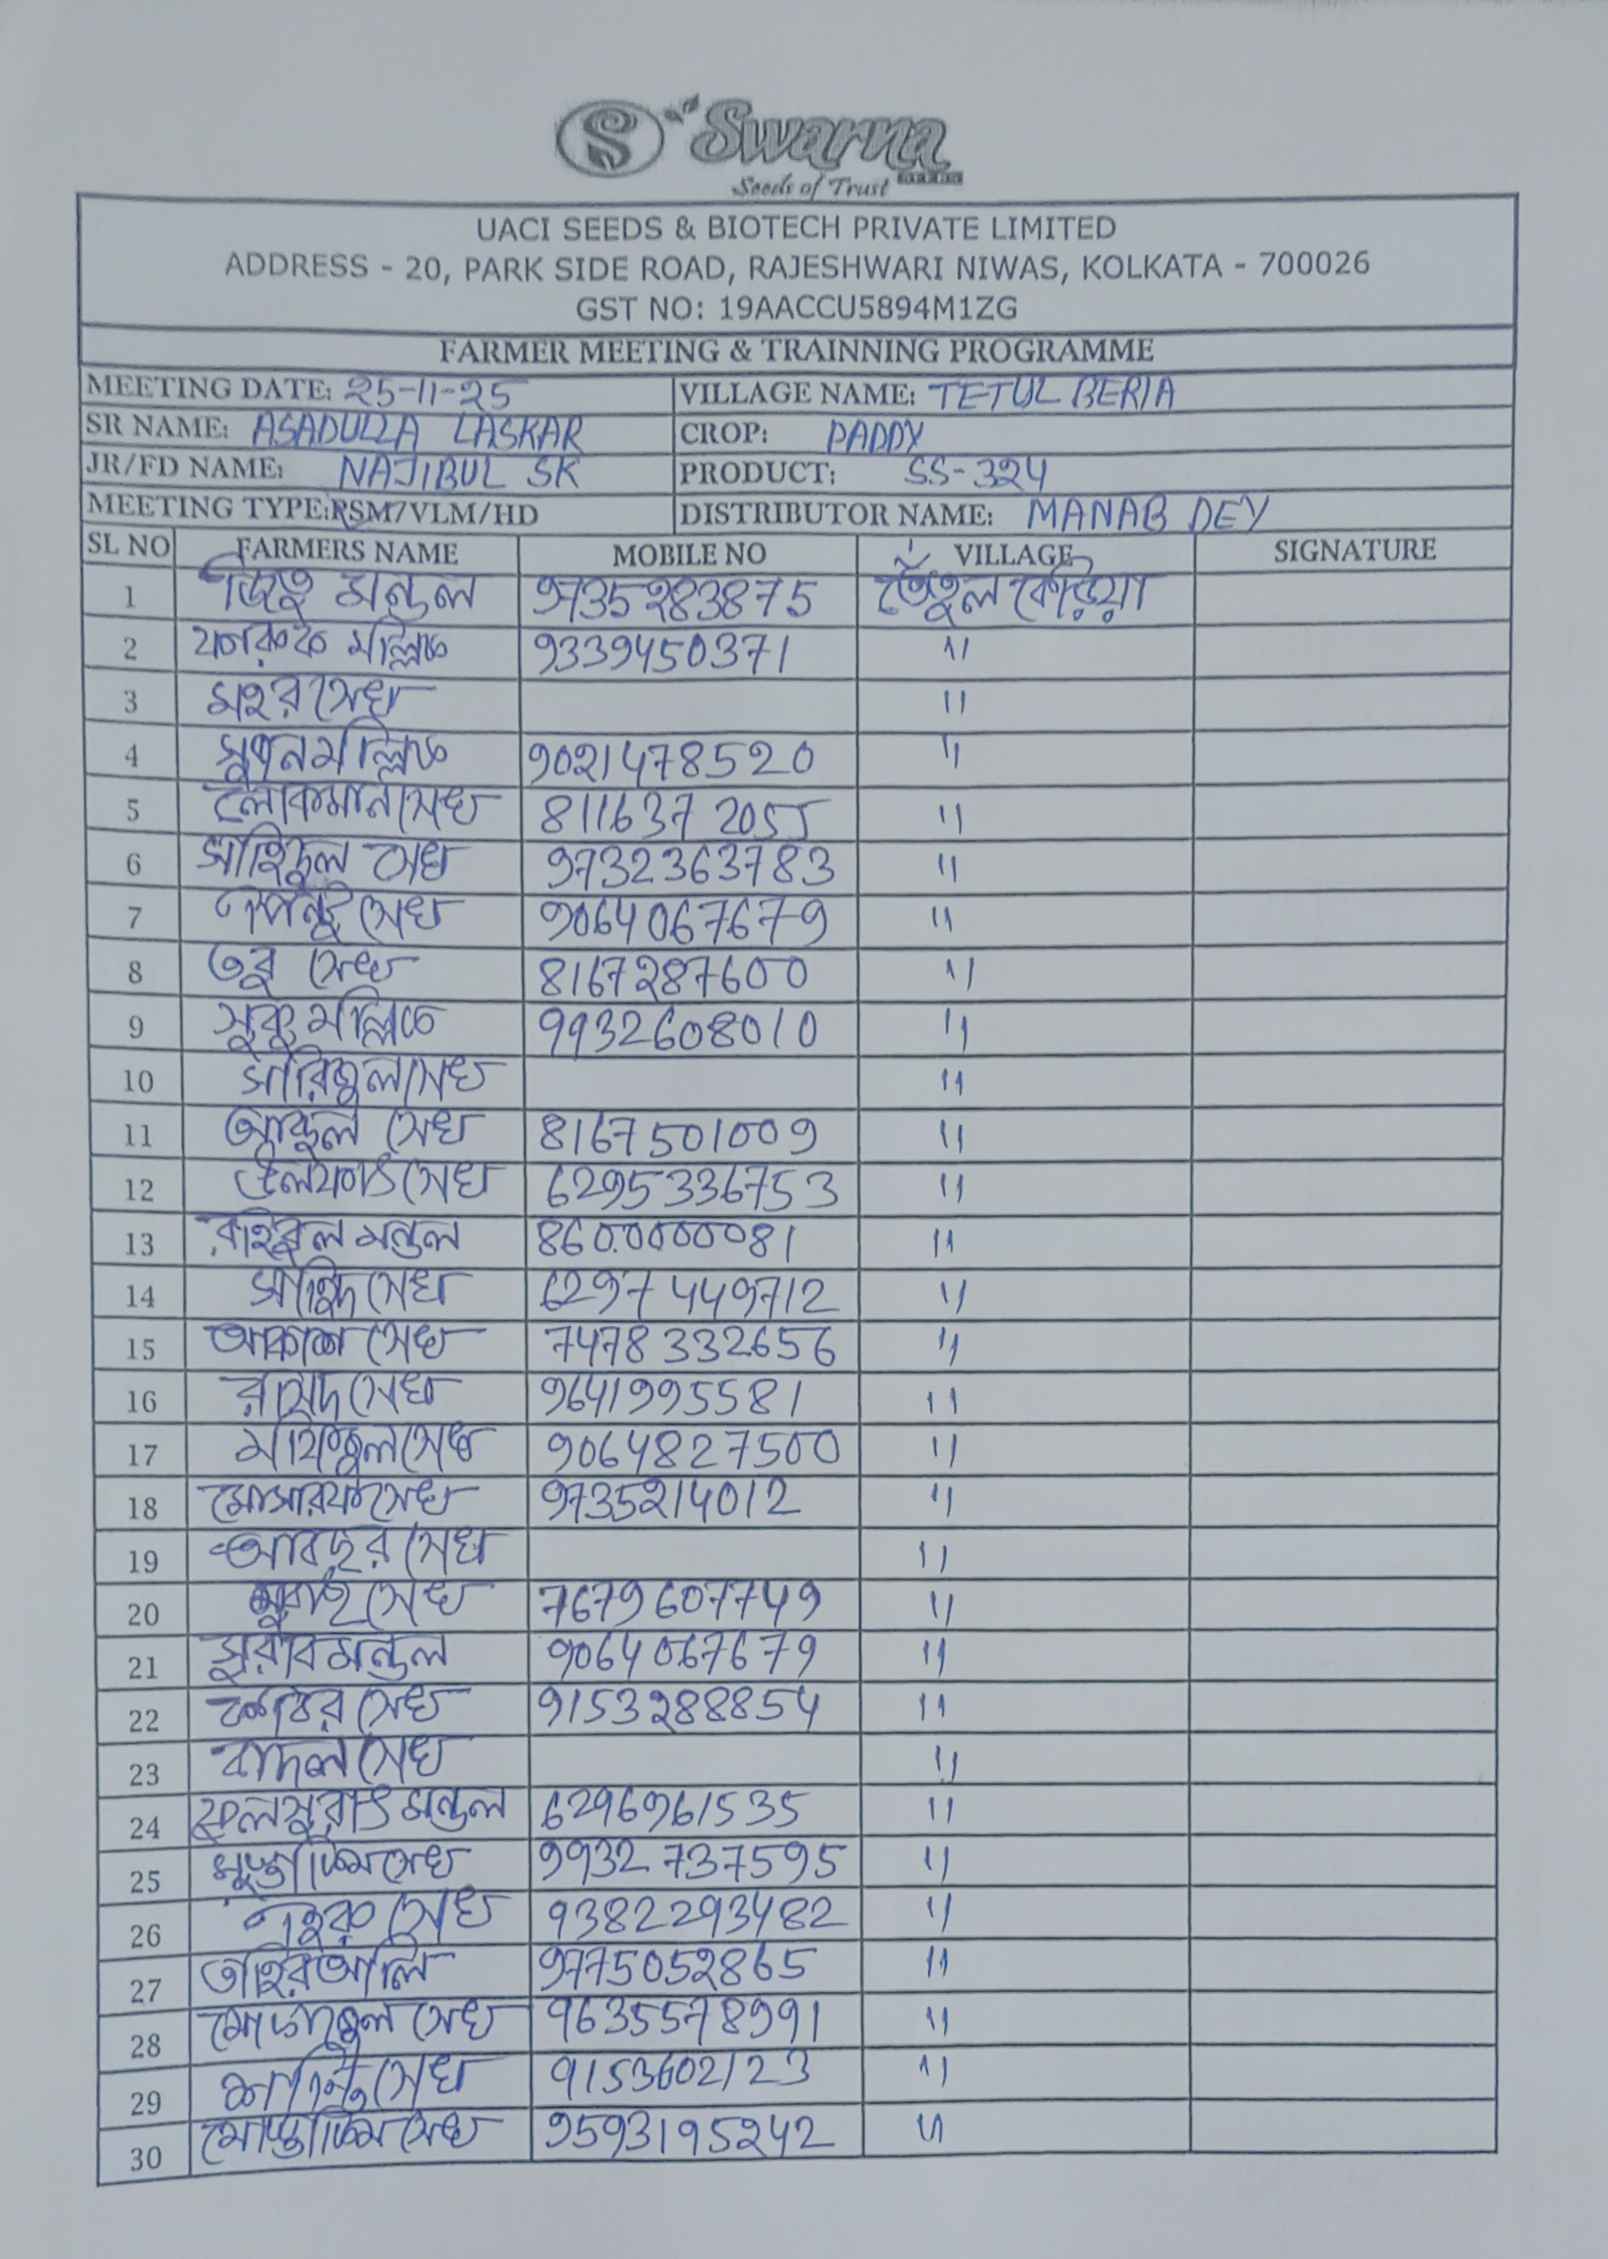 Swarna
Seeds of Trust
UACI SEEDS & BIOTECH PRIVATE LIMITED
ADDRESS - 20, PARK SIDE ROAD, RAJESHWARI NIWAS, KOLKATA - 700026
GST NO: 19AACCU5894M1ZG
FARMER MEETING & TRAINNING PROGRAMME
MEETING DATE: 25-11-25 VILLAGE NAME: TETUL BERIA
SR NAME: ASADULLA LASKAR CROP: PADDY
JR/FD NAME: NAJIBUL SK PRODUCT: SS-324
MEETING TYPE:RSM/VLM/HD DISTRIBUTOR NAME: MANAB DEY
SL NO FARMERS NAME MOBILE NO VILLAGE SIGNATURE
1 মন্ডল 9735283875 তেঁতুল বেড়িয়া
2 ফারুক মল্লিক 9339450371 "
3 সেখ "
4 মল্লিক 9021478520 "
5 লোকমান সেখ 8116372055 "
6 সেখ 9732363783 "
7 পিন্টু সেখ 9064067679 "
8 সেখ 8167287600 "
9 সুকু মল্লিক 9932608010 "
10 সারিফুল সেখ "
11 সেখ 8167501009 "
12 সেখ 6295336753 "
13 মন্ডল 8600000081 "
14 সেখ 6297449712 "
15 আকাশ সেখ 7478332656 "
16 সেখ 9641995581 "
17 সেখ 9064827500 "
18 সেখ 9735214012 "
19 সেখ "
20 সেখ 7679607749 "
21 মন্ডল 9064067679 "
22 সেখ 9153288854 "
23 বাদল সেখ "
24 মন্ডল 6296961535 "
25 সেখ 9932737595 "
26 সেখ 9382293482 "
27 তাহির আলি 9775052865 "
28 সেখ 9635578991 "
29 সেখ 9153602123 "
30 সেখ 9593195242 "